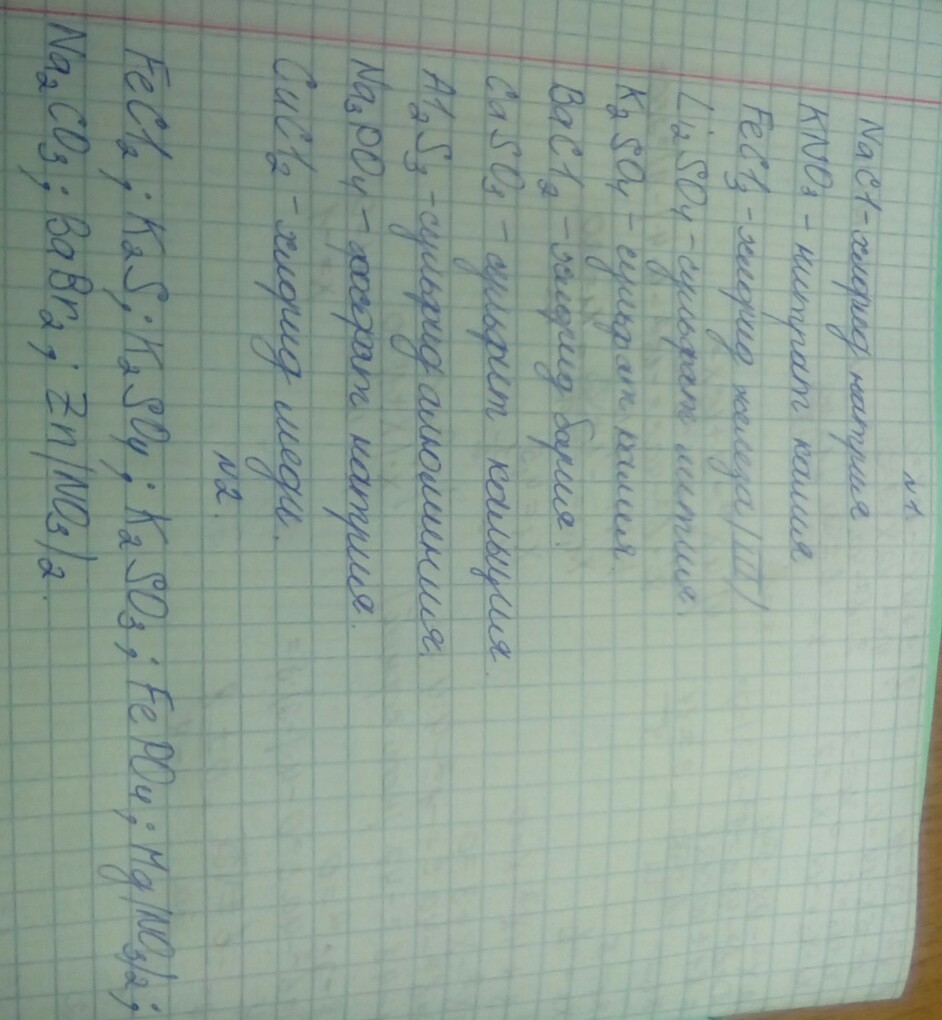 №1.
NaCl - хлорид натрия
KNO3 - нитрат калия.
FeCl3 - хлорид железа /III/
Li2SO4 - сульфат лития.
K2SO4 - сульфат калия.
BaCl2 - хлорид бария.
CaSO3 - сульфит кальция.
Al2S3 - сульфид алюминия.
Na3PO4 - фосфат натрия.
CuCl2 - хлорид меди.
№2.
FeCl2; K2S; K2SO4; K2SO3; FePO4; Mg/NO3/2;
Na2CO3; BaBr2; Zn/NO3/2.